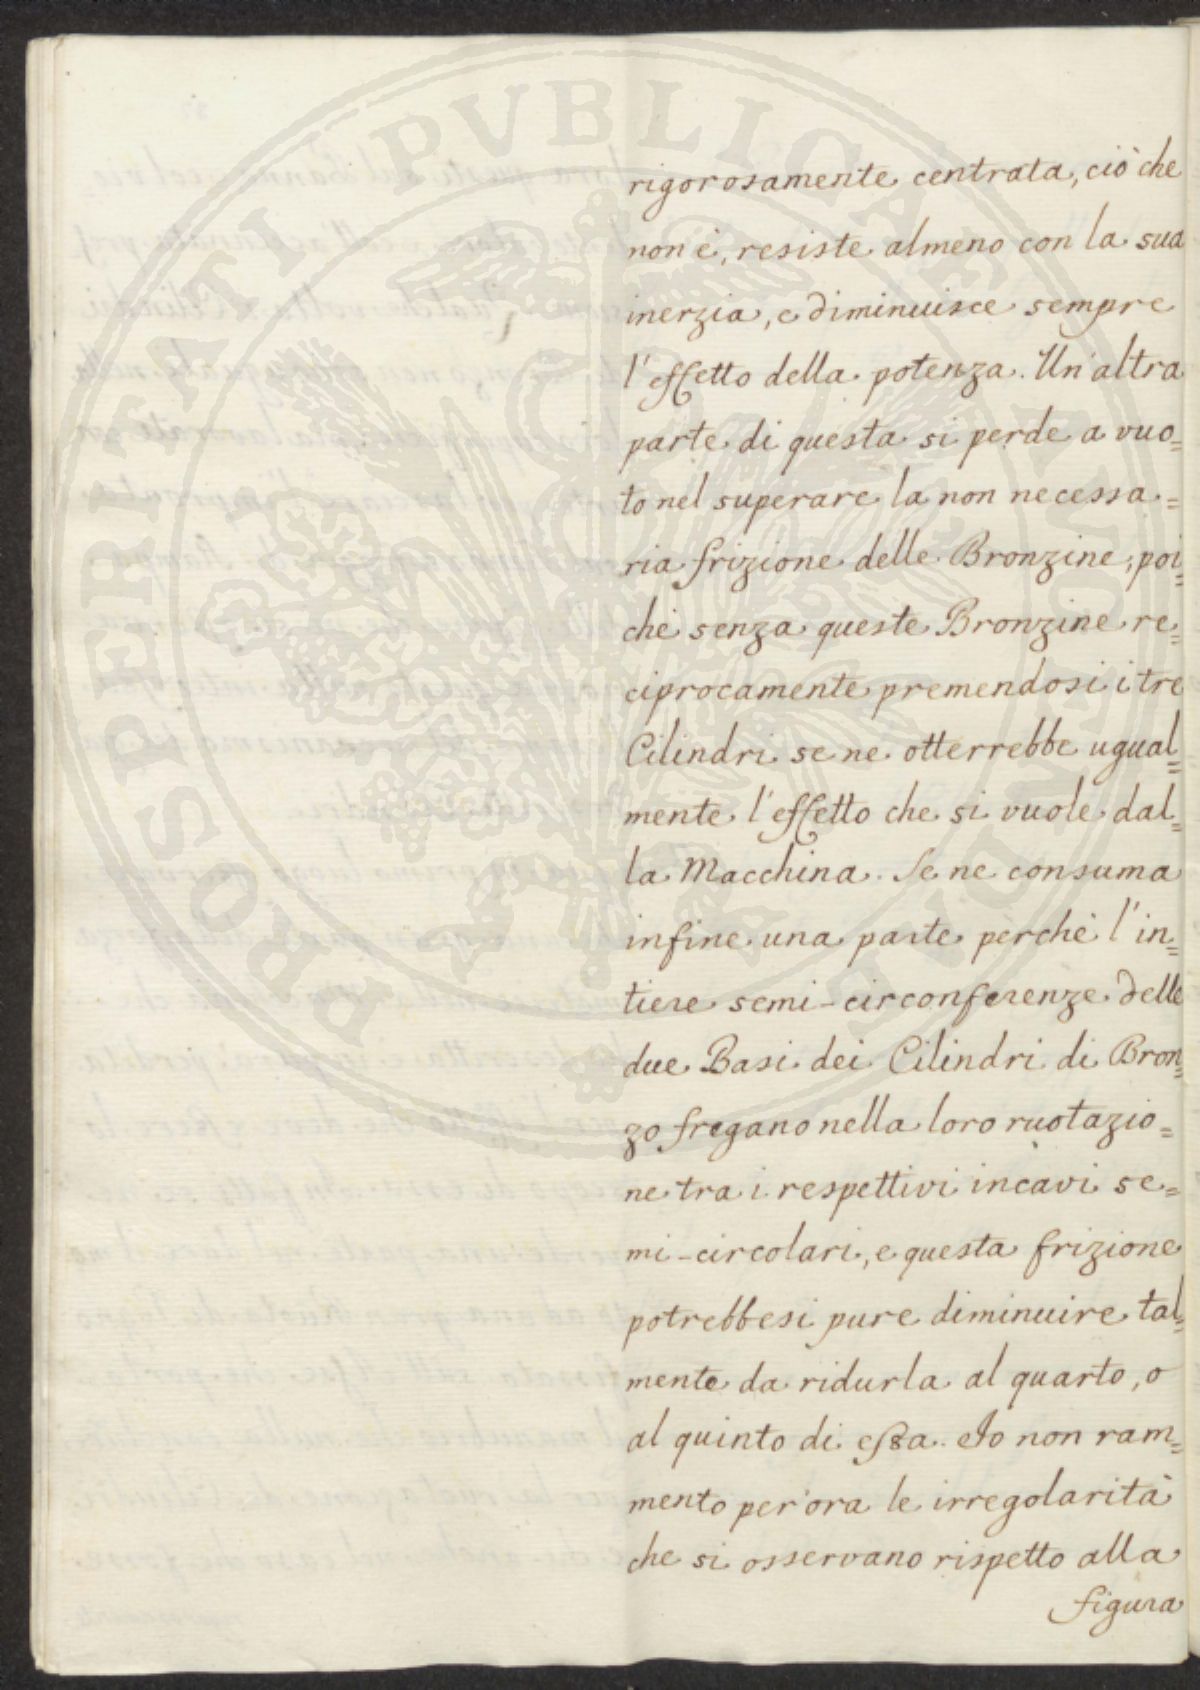 rigorosamente centrata, ciò che
non è, resiste almeno con la sua
inerzia, e diminuisce sempre
l'effetto della potenza. Un'altra
parte di questa si perde a vuo=
to nel superare la non necessa=
ria frizione delle Bronzine; poi=
chè senza queste Bronzine re=
ciprocamente premendosi i tre
Cilindri se ne otterrebbe ugual=
mente l'effetto che si vuole dal=
la Macchina. Se ne consuma
infine una parte perchè l'in=
tiere semi-circonferenze delle
due Basi dei Cilindri di Bron=
zo fregano nella loro ruotazio=
ne tra i respettivi incavi se=
mi-circolari, e questa frizione
potrebbesi pure diminuire tal=
mente da ridurla al quarto, o
al quinto di essa. Io non ram=
mento per ora le irregolarità
che si osservano rispetto alla
figura
PROSPERITATI PVBLICAE